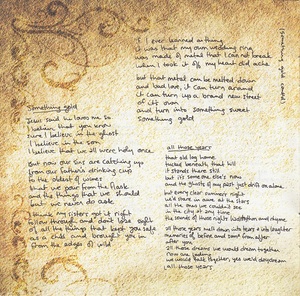 Something gold
Jesus said he loves me so
I believe that you know
sure I believe in the ghost
I believe in the son
I believe that we all were holy once
But now our sins are catching up
from our fathers drinking cups
to the oldest of wines
that we pour from the flask
and the things that we should
but we never do ask
I think my sisters got it right
follow through and don't lose sight
of all the things that kept you safe
as a child and brought you in
from the edges of wild
(something gold cont'd)
if I ever learned anything
it was that my own wedding ring
was made of metal that I can not break
when I took it off my heart did ache
but that metal can be melted down
and bad love, it can turn around
it can turn up a brand new street
of it's own
and turn into something sweet
Something gold
all those years
that old log home
tucked beneath that hill
it stands there still
but it's someone else's now
and the ghosts of my past just drift on alone
but every clear summer night
we'd stare in awe at the stars
all the ones we couldn't see
in the city at any time
the sounds of those nights rhythm and rhyme
all those years melt down into tears and into laughter
memories of before and soon from after
after you
all those dreams we would dream together
now are fading
we would talk together, yes we'd daydream
all those years